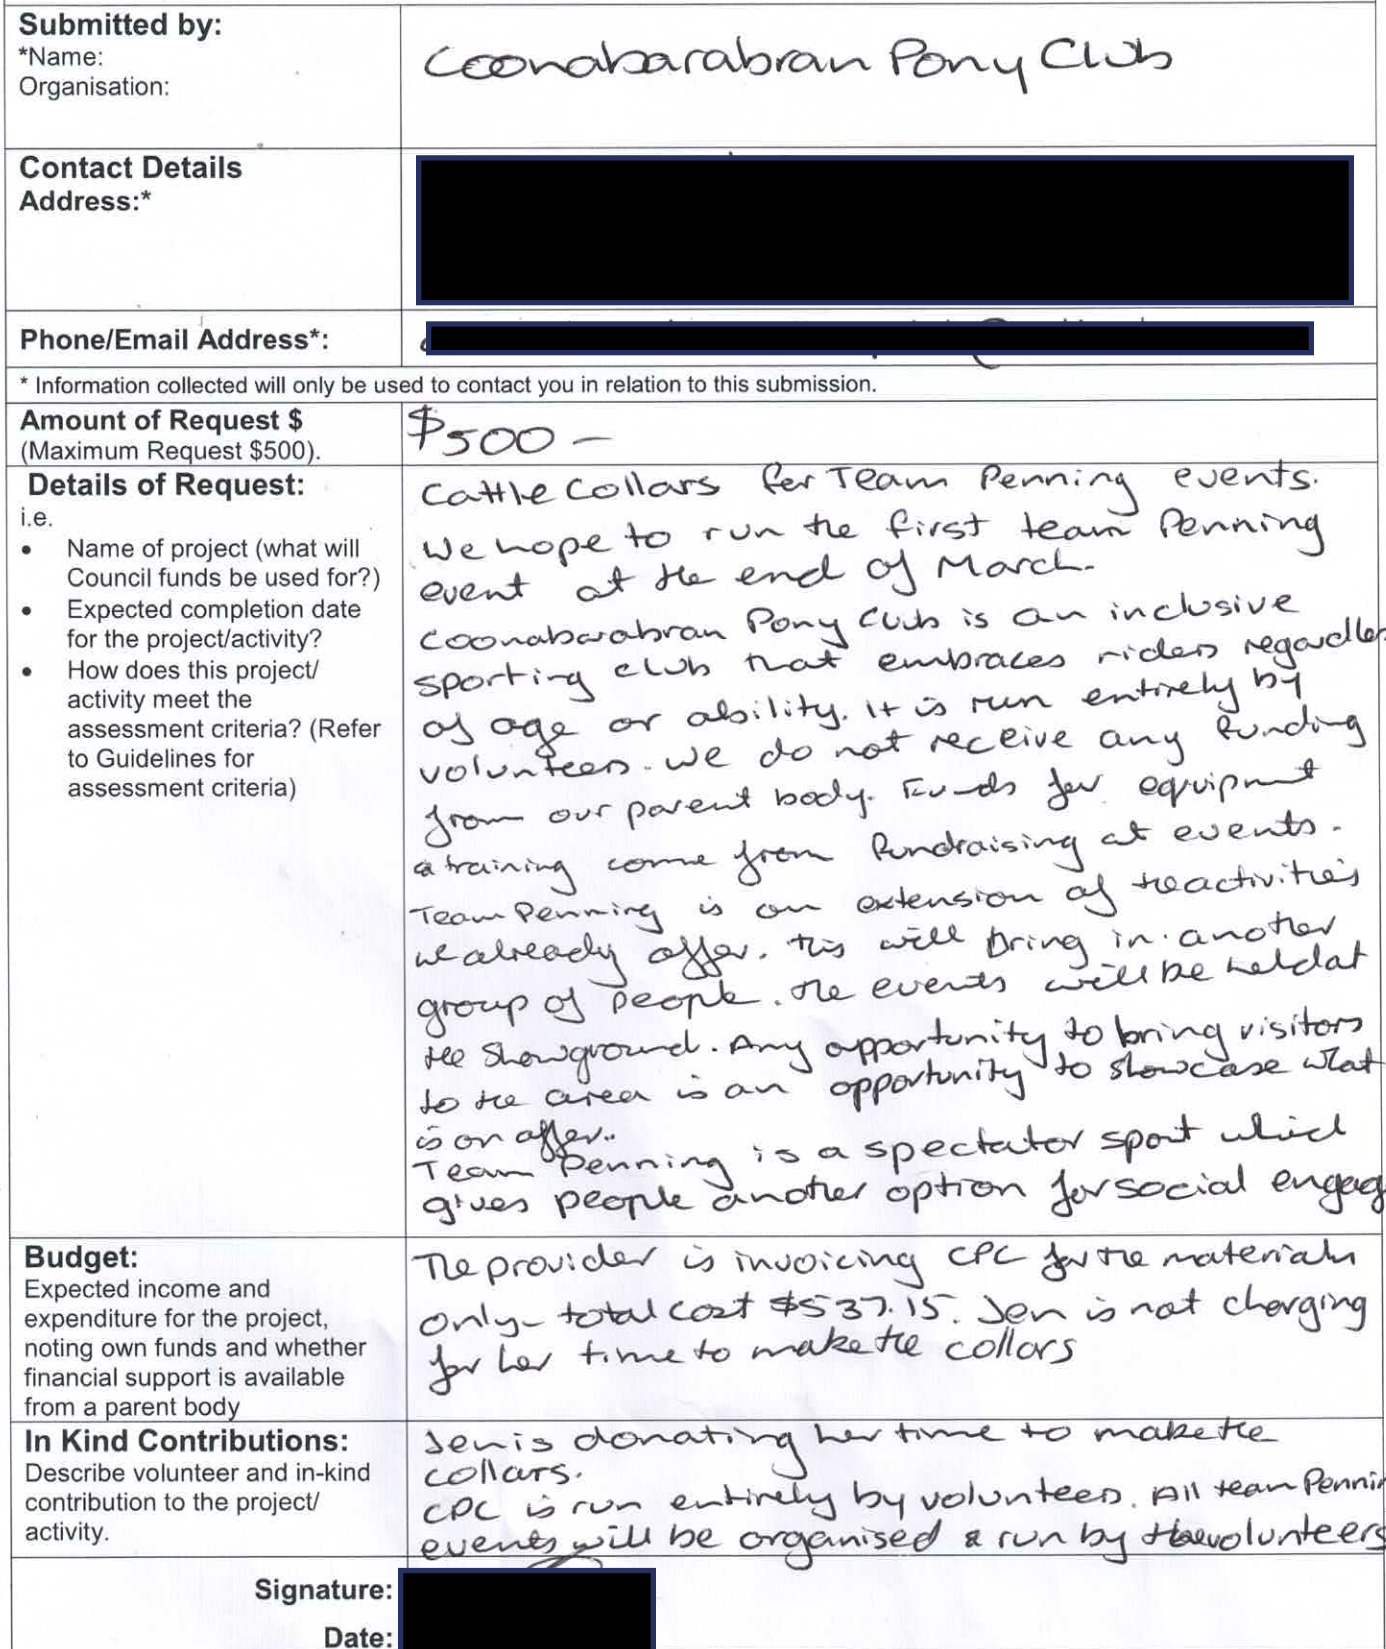 Submitted by:
*Name:
Organisation:
Coonabarabran Pony Club
Contact Details
Address:*
Phone/Email Address*:
* Information collected will only be used to contact you in relation to this submission.
Amount of Request $
(Maximum Request $500).
$500 –
Details of Request:
i.e.
• Name of project (what will
Council funds be used for?)
• Expected completion date
for the project/activity?
• How does this project/
activity meet the
assessment criteria? (Refer
to Guidelines for
assessment criteria)
Cattle Collars for Team Penning events.
We hope to run the first team Penning
event at the end of March.
Coonabarabran Pony Club is an inclusive
sporting club that embraces riders regardles
of age or ability. It is run entirely by
volunteers. We do not receive any funding
from our parent body. Funds for equipment
& training come from fundraising at events.
Team Penning is an extension of the activities
we already offer. This will bring in another
group of people. The events will be held at
the Showground. Any opportunity to bring visitors
to the area is an opportunity to showcase what
is on offer..
Team Penning is a spectator sport which
gives people another option for social engag
Budget:
Expected income and
expenditure for the project,
noting own funds and whether
financial support is available
from a parent body
The provider is invoicing CPC for the materials
only – total cost $537.15. Jen is not charging
for her time to make the collars
In Kind Contributions:
Describe volunteer and in-kind
contribution to the project/
activity.
Jen is donating her time to make the
collars.
CPC is run entirely by volunteers. All team Pennin
events will be organised & run by the volunteers
Signature:
Date: